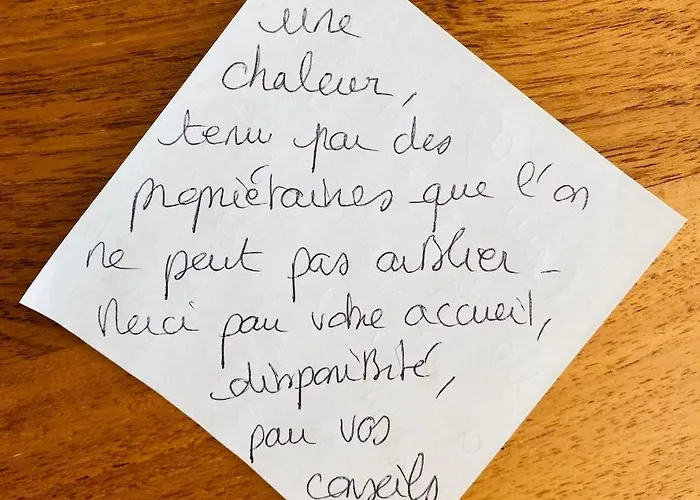 une
chaleur,
tenu par des
propriétaires que l'on
ne peut pas oublier -
Merci pour votre accueil,
disponibilité,
pour vos
conseils